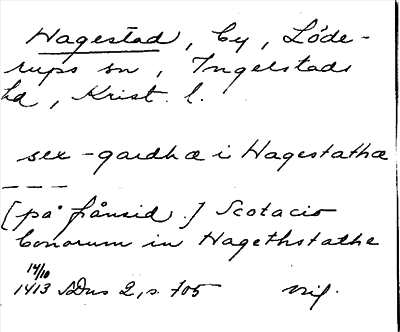 Hagestad, by, Löde-
rups sn, Ingelstads
hd, Krist. l.
sex-gardhæ i Hagestathæ
---
[på frånsid.] Scotacio
bonorum in Hagethstathe
14/10
1413 SDns 2, s. 705